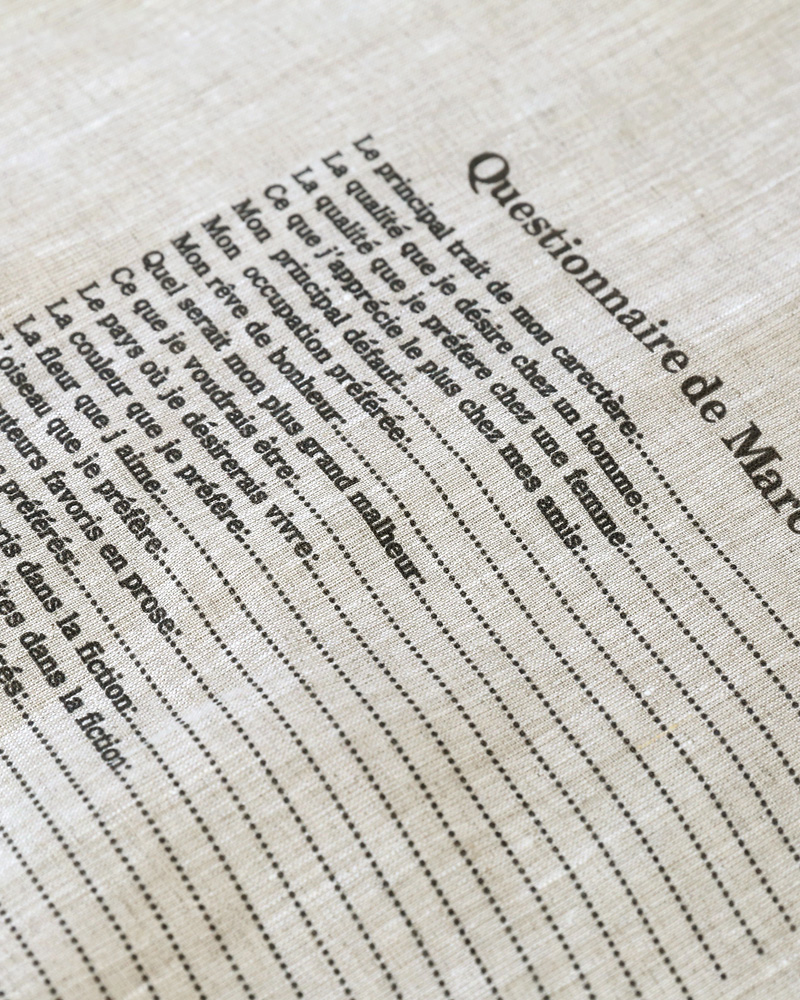 Questionnaire de Marc
Le principal trait de mon carectère:
La qualité que je désire chez un homme:
La qualité que je préfere chez une femme:
Ce que j'apprécie le plus chez mes amis:
Mon principal défaut:
Mon occupation préférée:
Mon rêve de bonheur:
Quel serait mon plus grand malheur:
Ce que je voudrais être:
Le pays où je désirerais vivre:
La couleur que je préfère:
La fleur que j aime:
L'oiseau que je préfère:
favoris en prose:
préférés:
dans la fiction:
dans la fiction: